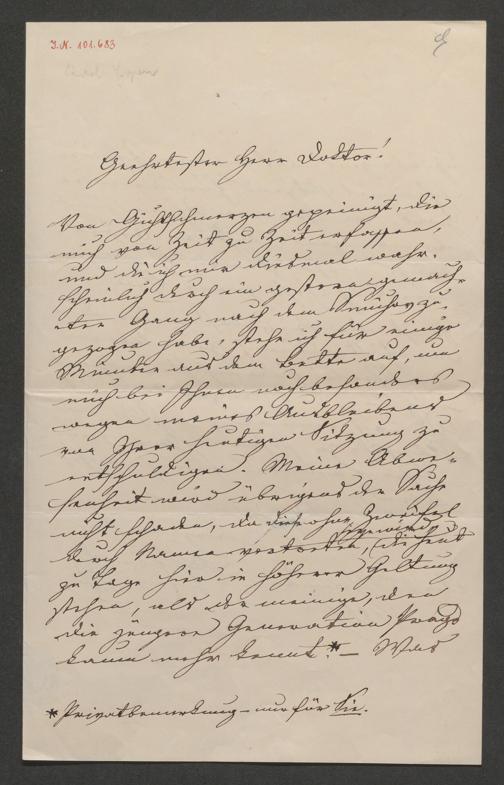 J.N. 101.683
Geehrtester Herr Doktor!
Von Gichtschmerzen gepeinigt, die
mich von Zeit zu Zeit erfassen,
und die ich mir diesmal wahr-
scheinlich durch ein gestern gemach-
ten Gang nach dem zu-
gezogen habe, stehe ich für einige
Minuten aus dem Bette auf, um
mich bei Ihnen noch besonders
wegen meines Ausbleibens
von Ihrer heutigen Sitzung zu
entschuldigen. Meine Abwe-
senheit wird übrigens der Sache
nicht schaden, da diese ohne Zweifel
durch Namen vertreten, die heut
zu Tage hier in höherer Geltung
stehen, als der meinige, den
die jüngere Generation Prags
kaum mehr kennt.* – Was
* Privatbemerkung – nur für Sie.